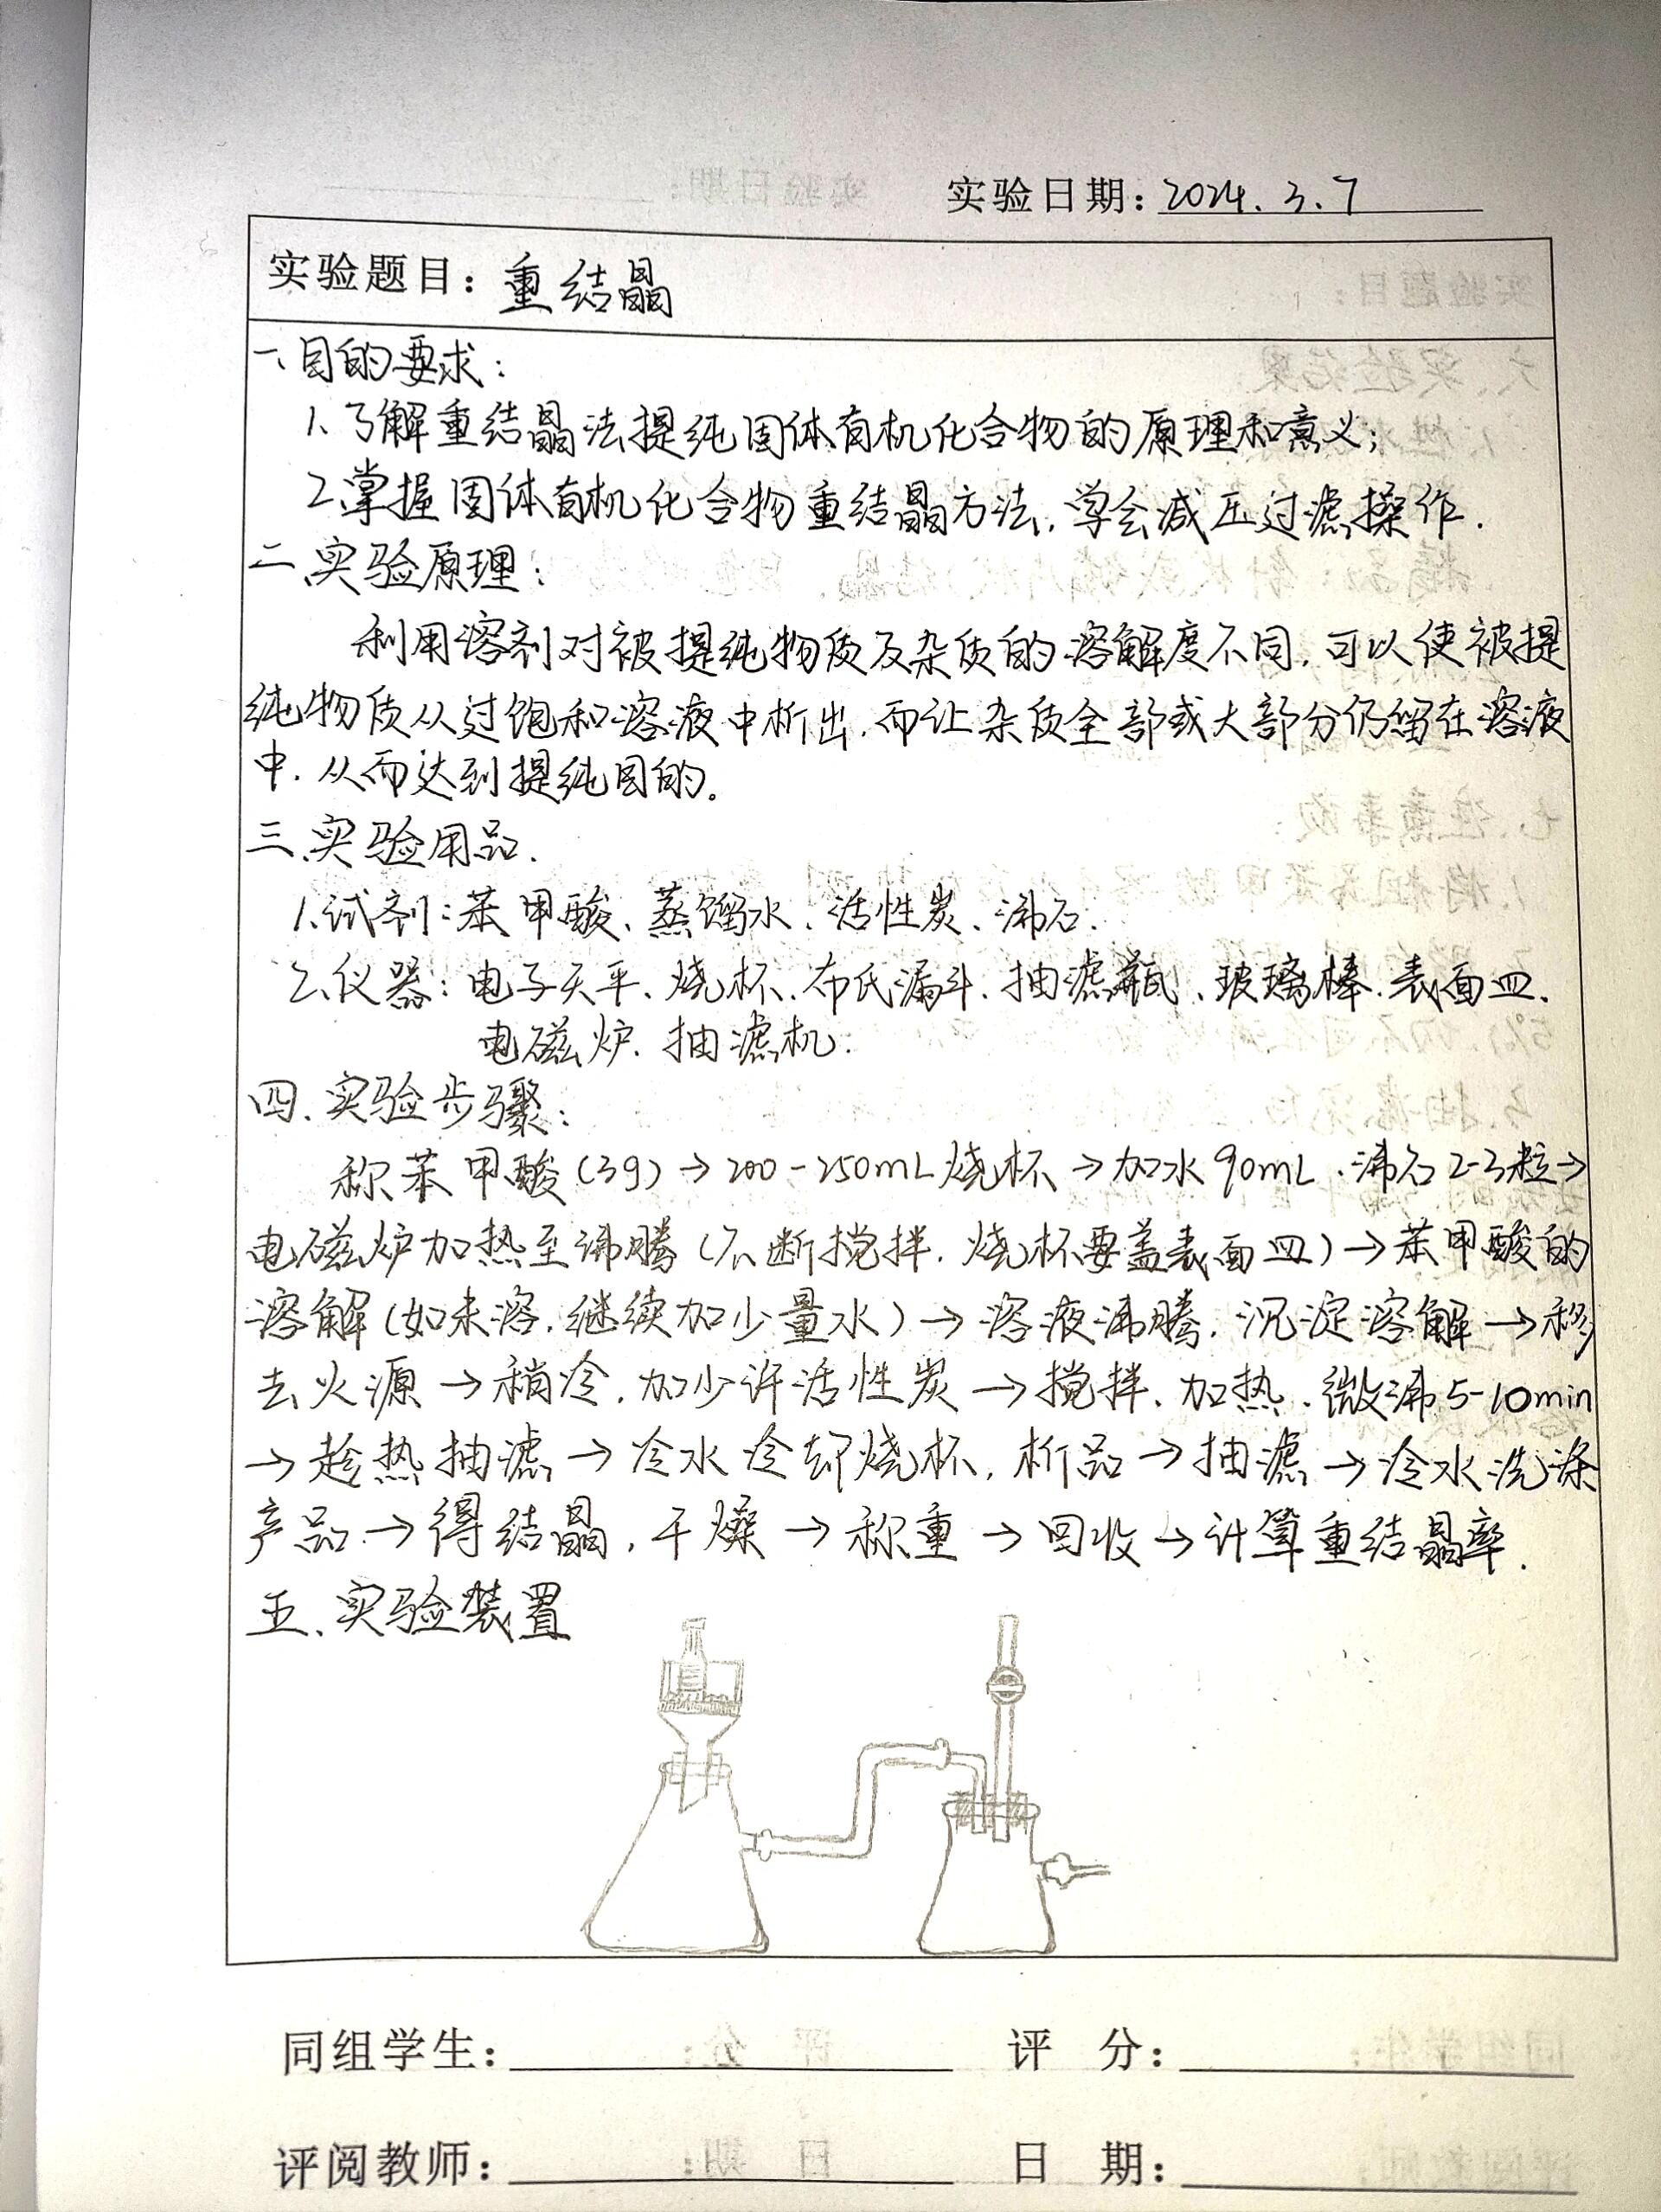 实验日期: 2024.3.7
实验题目: 重结晶
一、目的要求:
1、了解重结晶法提纯固体有机化合物的原理和意义;
2、掌握固体有机化合物重结晶方法,学会减压过滤操作.
二、实验原理:
利用溶剂对被提纯物质及杂质的溶解度不同,可以使被提
纯物质从过饱和溶液中析出,而让杂质全部或大部分仍留在溶液
中,从而达到提纯目的。
三、实验用品.
1、试剂:苯甲酸、蒸馏水、活性炭、沸石.
2、仪器:电子天平、烧杯、布氏漏斗、抽滤瓶、玻璃棒、表面皿、
电磁炉、抽滤机.
四、实验步骤:
称苯甲酸(3g)→200-250mL烧杯→加水90mL、沸石2-3粒→
电磁炉加热至沸腾(不断搅拌,烧杯要盖表面皿)→苯甲酸的
溶解(如未溶,继续加少量水)→溶液沸腾,沉淀溶解→移
去火源→稍冷,加少许活性炭→搅拌、加热、微沸5-10min
→趁热抽滤→冷水冷却烧杯,析品→抽滤→冷水洗涤
产品→得结晶,干燥→称重→回收→计算重结晶率.
五、实验装置
同组学生: 评 分:
评阅教师: 日 期: